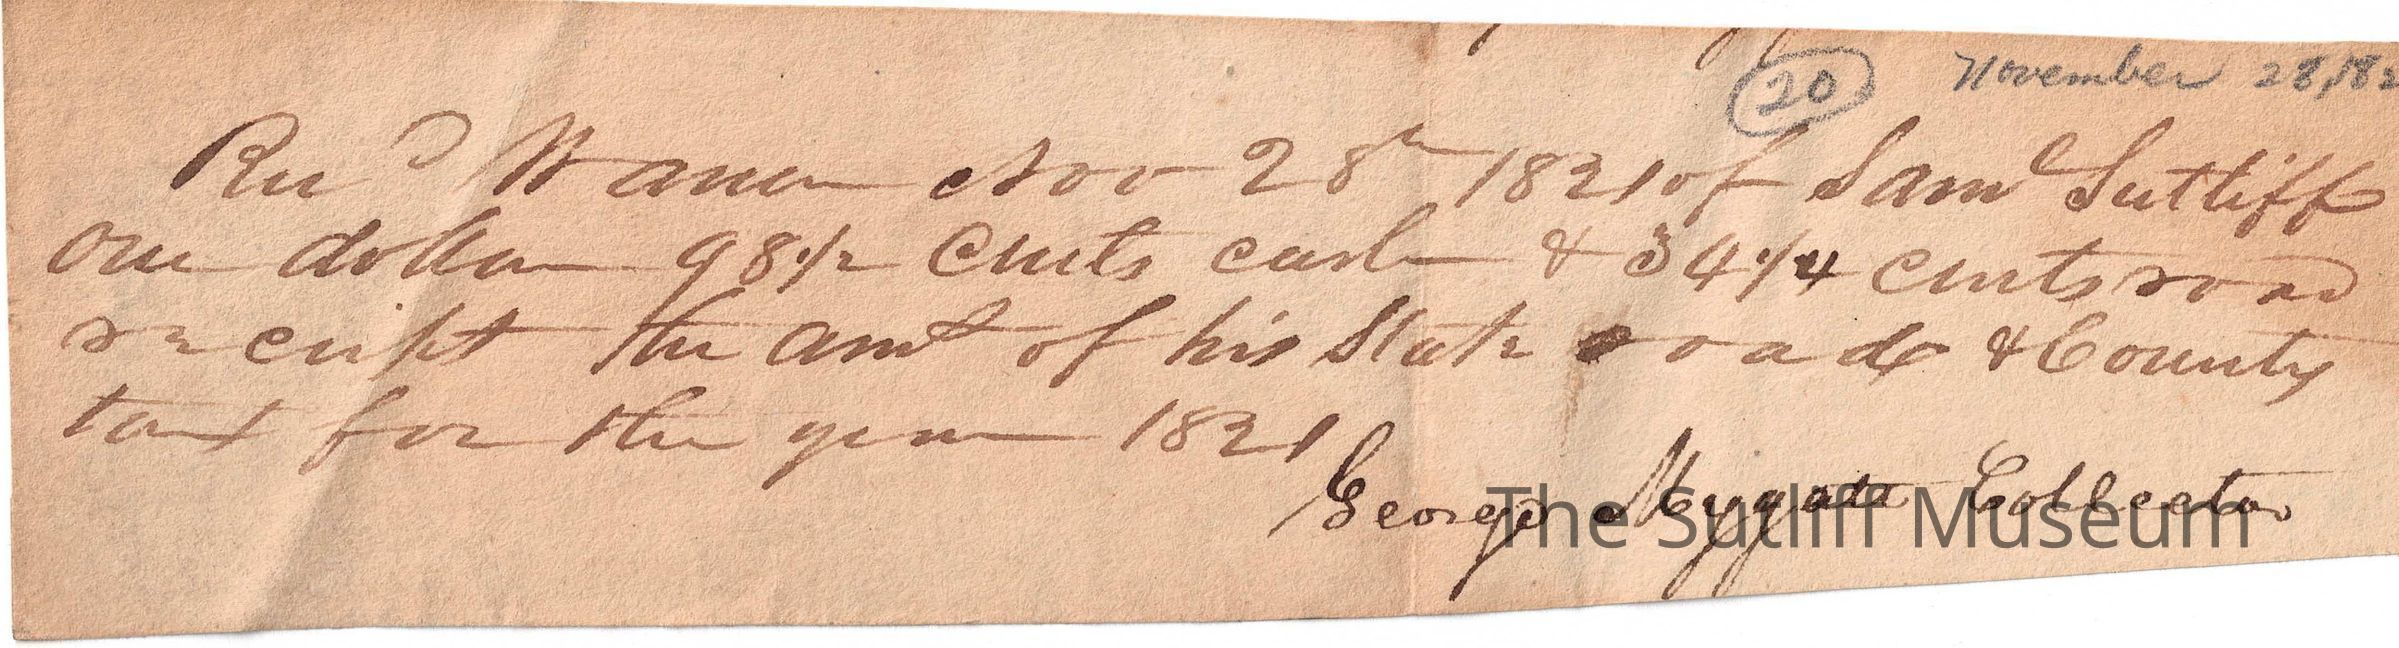 20 November 28, 182
Recd Warren Nov 28th 1821 of Saml Sutliff
one dollar 98 1/2 cents cash & 34 1/4 cents road
receipt the amt of his State road & County
tax for the year 1821
George Mygatt Collector
The Sutliff Museum